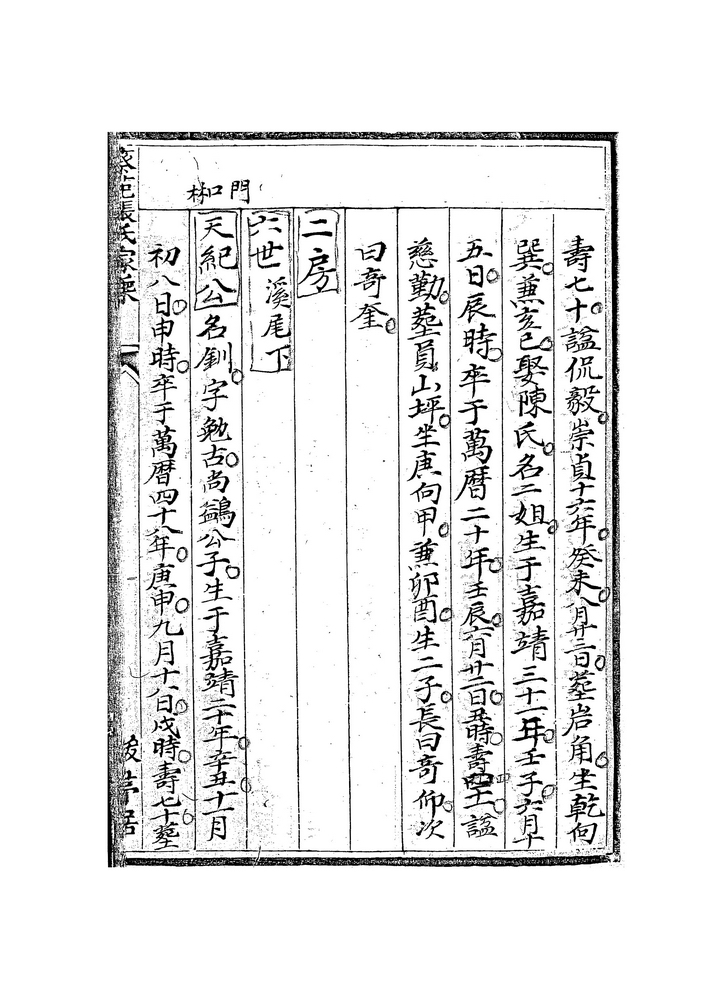 門口林
壽七十諡侃毅崇貞十六年癸未八月廿三日塟岩角坐乾向
巽兼亥巳娶陳氏名二姐生于嘉靖三十一年壬子六月十
五日辰時卒于萬曆二十年壬辰六月廿二日丑時壽四十一諡
慈勤塟員山坪坐庚向甲兼卯酉生二子長曰奇仰次
曰奇奎
二房
六世 溪尾下
天紀公名釧字勉古尚鷁公子生于嘉靖二十年辛丑十一月
初八日申時卒于萬曆四十八年庚申九月十八日戌時壽七十塟
張氏家乘
八